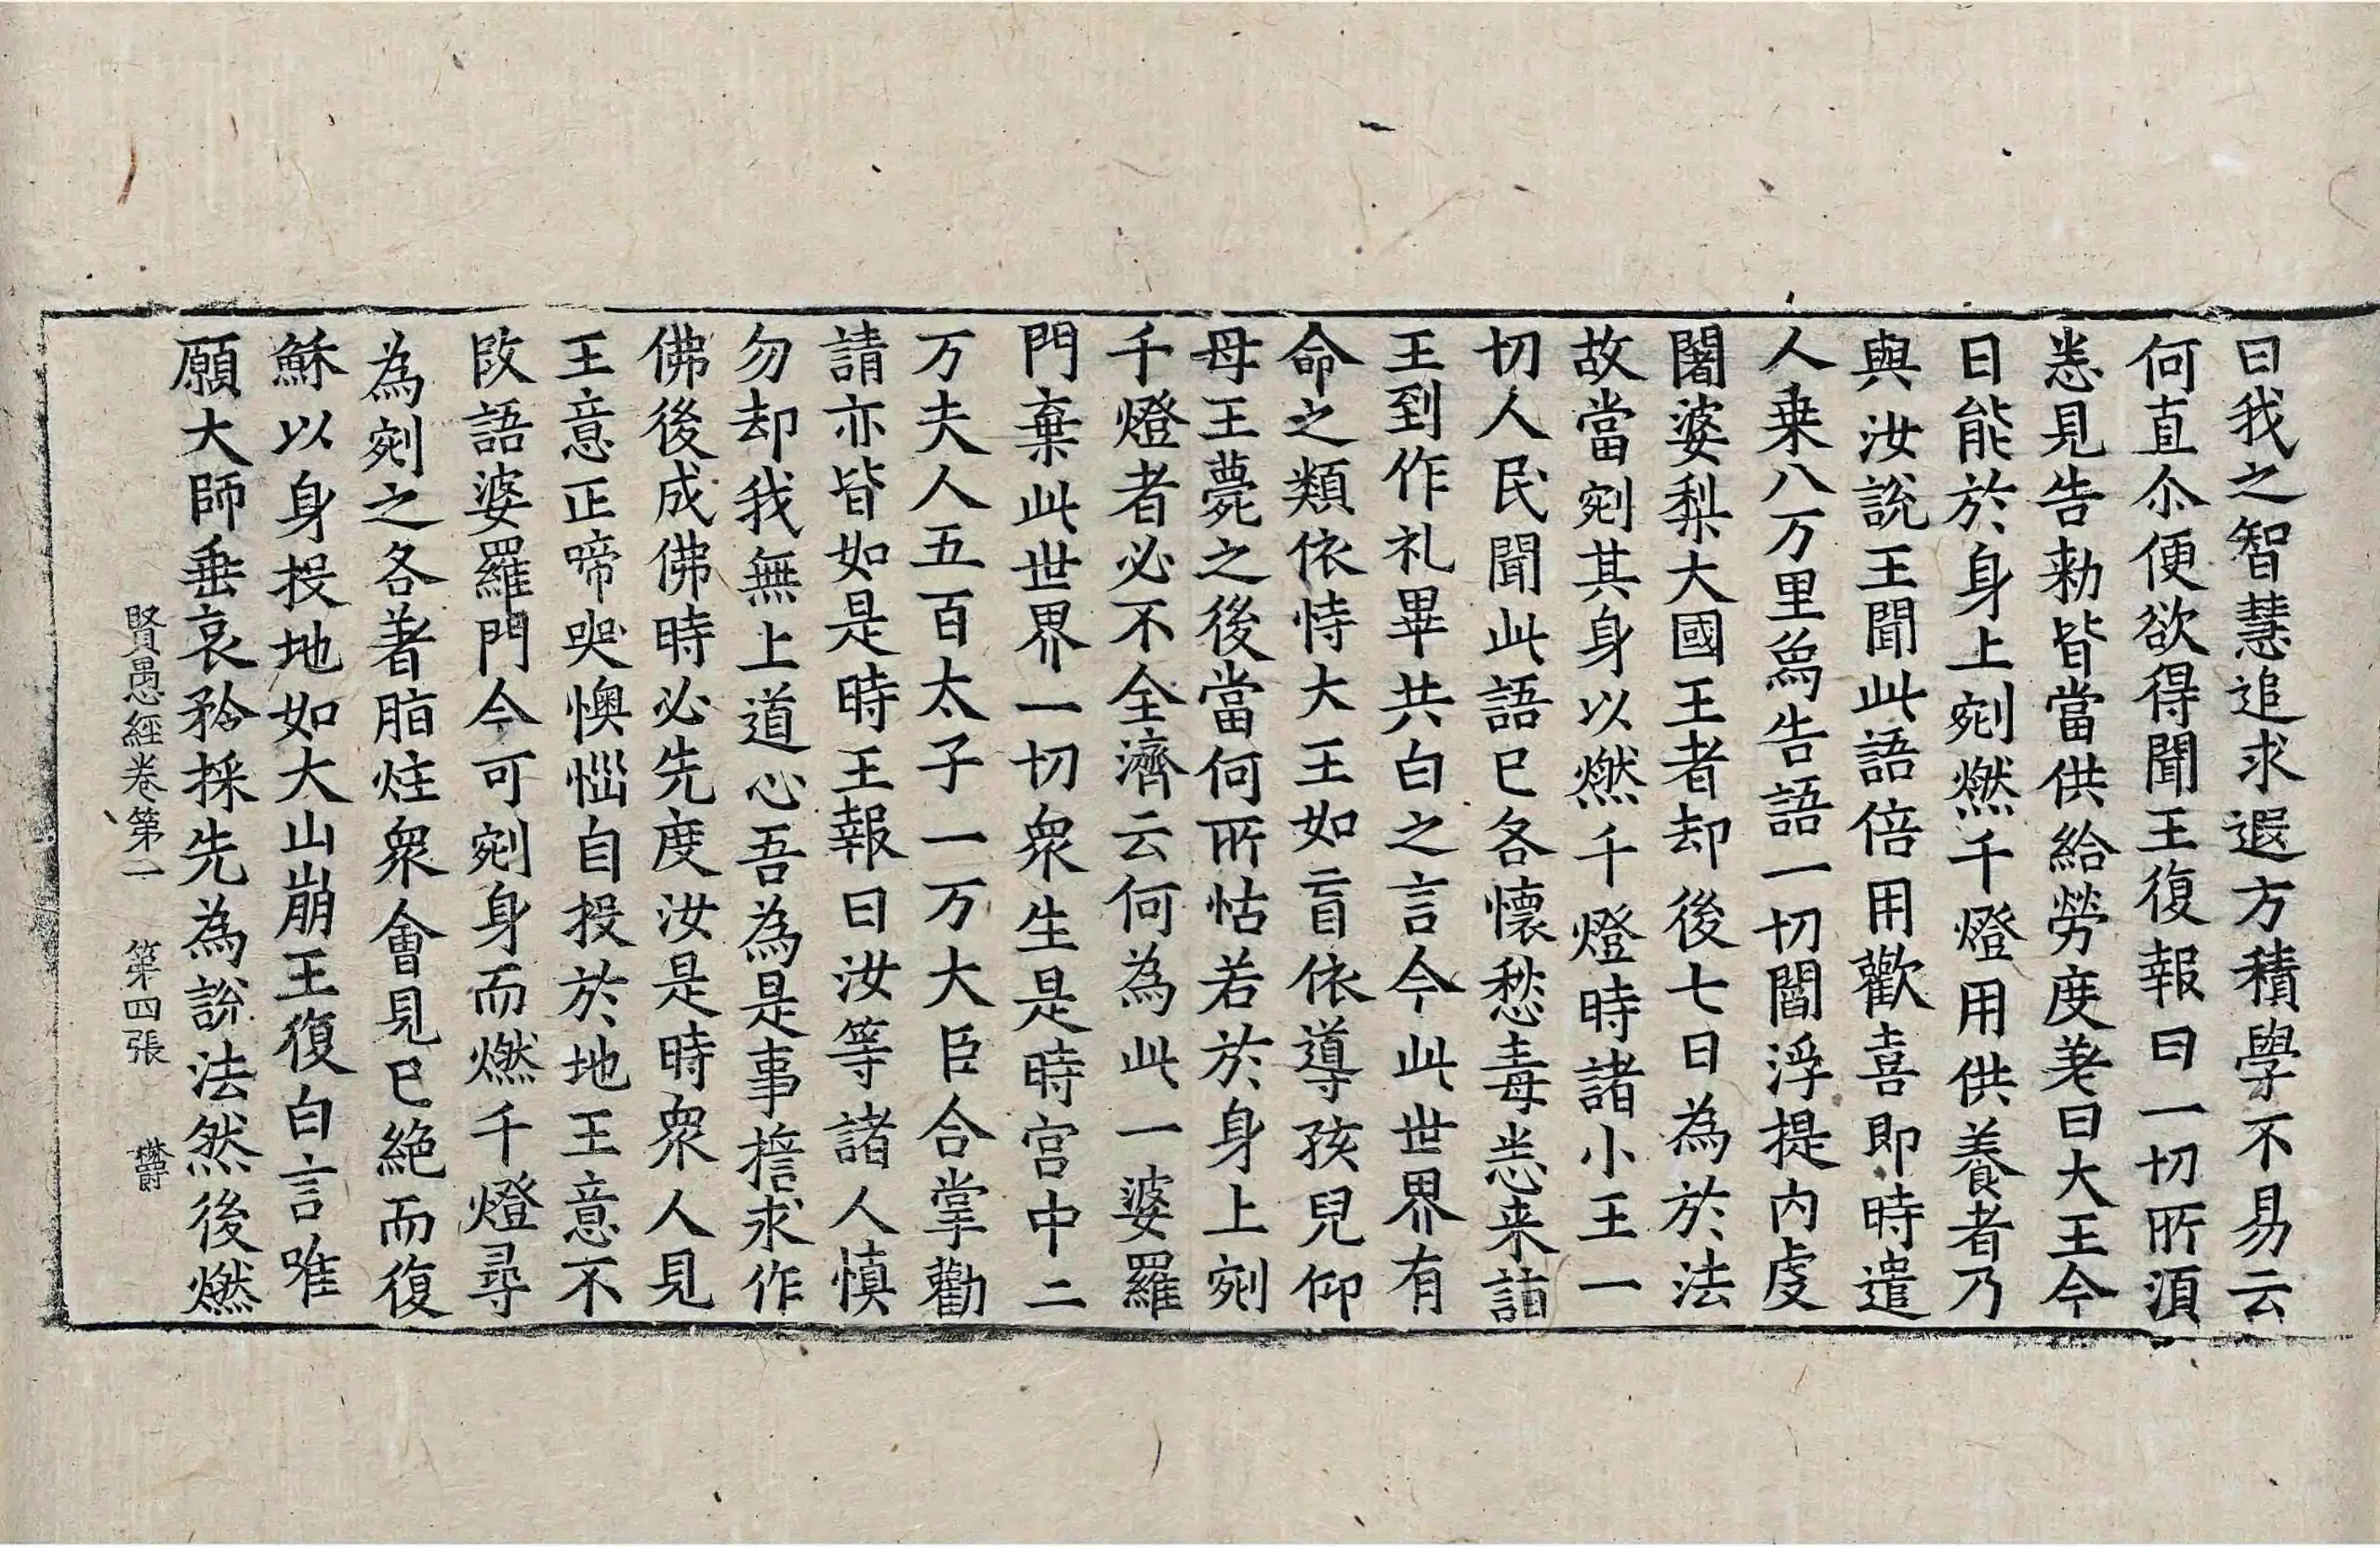 曰我之智慧追求遐方積學不易云
何直尒便欲得聞王復報曰一切所湏
悉見告勑皆當供給勞度差曰大王今
日能於身上剜燃千燈用供養者乃
與汝說王聞此語倍用歡喜即時遣
人乗八万里爲告語一切閻浮提內虔
闍婆梨大國王者却後七日為於法
故當剜其身以燃千燈時諸小王一
切人民聞此語已各懷愁毒悉来詣
王到作礼畢共白之言今此世界有
命之類依恃大王如盲依導孩兒仰
母王薨之後當何所怙若於身上剜
千燈者必不全濟云何為此一婆羅
門棄此世界一切衆生是時宮中二
万夫人五百太子一万大臣合掌勸
請亦皆如是時王報曰汝等諸人慎
勿却我無上道心吾為是事擔求作
佛後成佛時必先度汝是時衆人見
王意正啼哭懊惱自投於地王意不
改語婆羅門今可剜身而燃千燈尋
為剜之各著脂炷衆會見已絕而復
穌以身投地如大山崩王復白言唯
願大師垂哀矜採先為說法然後燃
賢愚經卷第一　第四張　欝